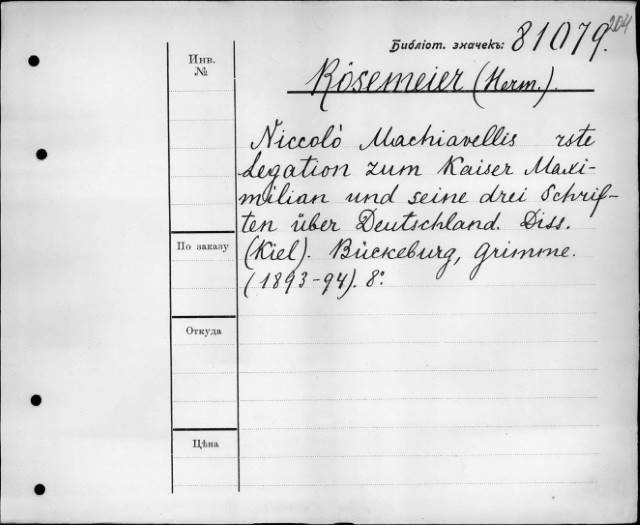 204
Библіот. значекъ: 81079.
Инв.
№
Rösemeier (Herm.).
Niccolò Machiavellis rste
Legation zum Kaiser Maxi-
milian und seine drei Schrif-
ten über Deutschland. Diss.
(Kiel). Bückeburg, Grimme.
(1893-94). 8º
По заказу
Откуда
Цѣна